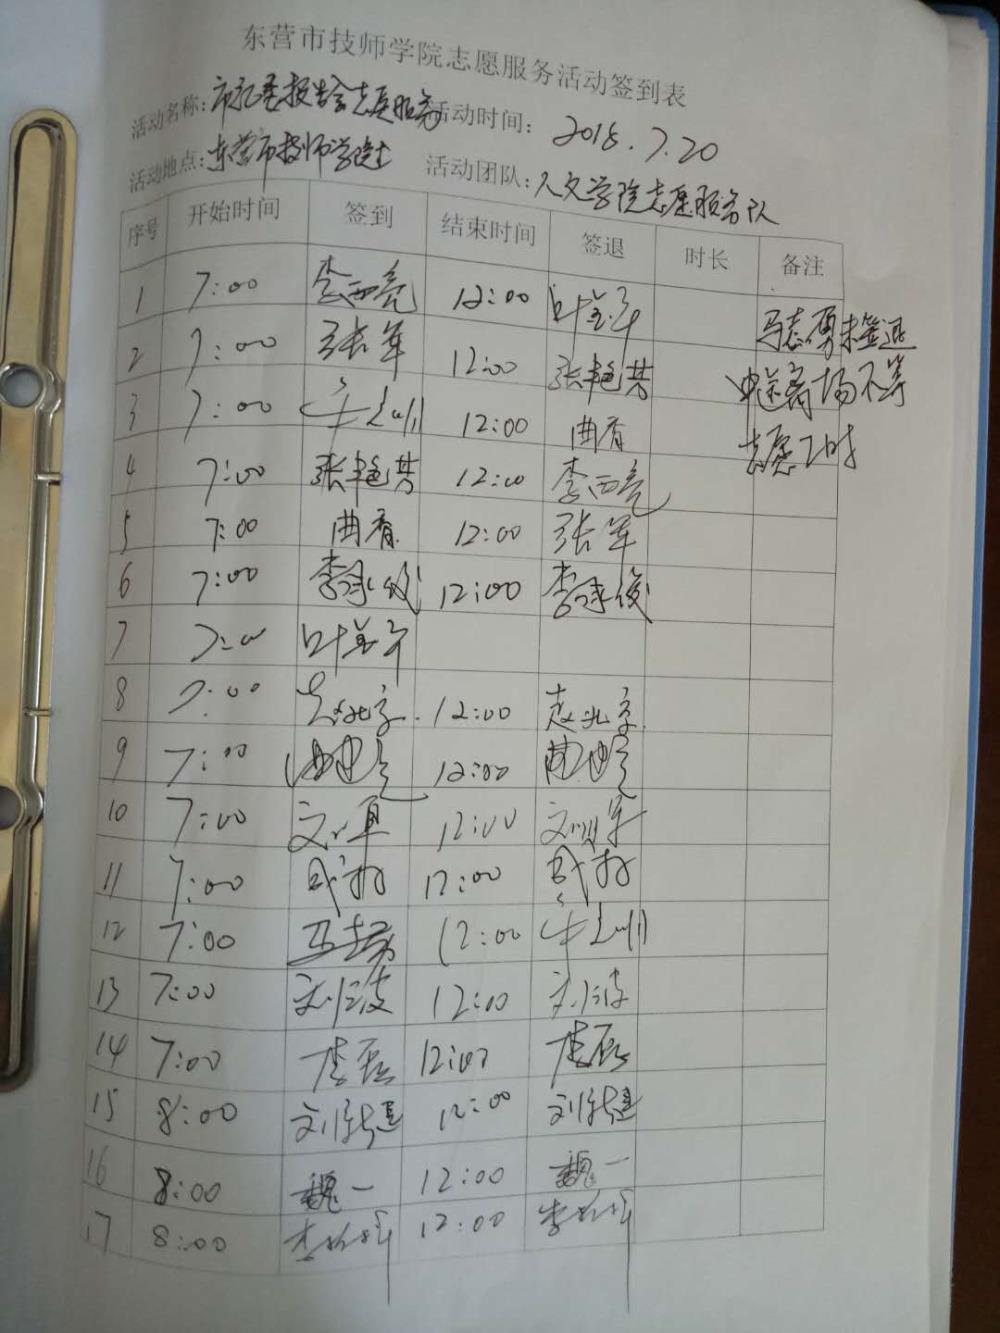 东营市技师学院志愿服务活动签到表
活动名称：市纪委报告会志愿服务 活动时间： 2018.7.20
活动地点：东营市技师学院 活动团队：人文学院志愿服务队
序号 开始时间 签到 结束时间 签退 时长 备注
1 7:00 李西亮 12:00 叶
2 7:00 张军 12:00 张艳芳
3 7:00 12:00 曲春
4 7:00 张艳芳 12:00 李西亮
5 7:00 曲春 12:00 张军
6 7:00 李承俊 12:00 李承俊
7 7:00 叶
8 7:00 赵兆京 12:00 赵兆京
9 7:00 12:00
10 7:00 12:00
11 7:00 12:00
12 7:00 马志勇 12:00
13 7:00 刘仁波 12:00 刘仁波
14 7:00 李磊 12:00 李磊
15 8:00 12:00
16 8:00 魏一 12:00 魏一
17 8:00 12:00
马志勇未签退
中途离场不算
志愿工时